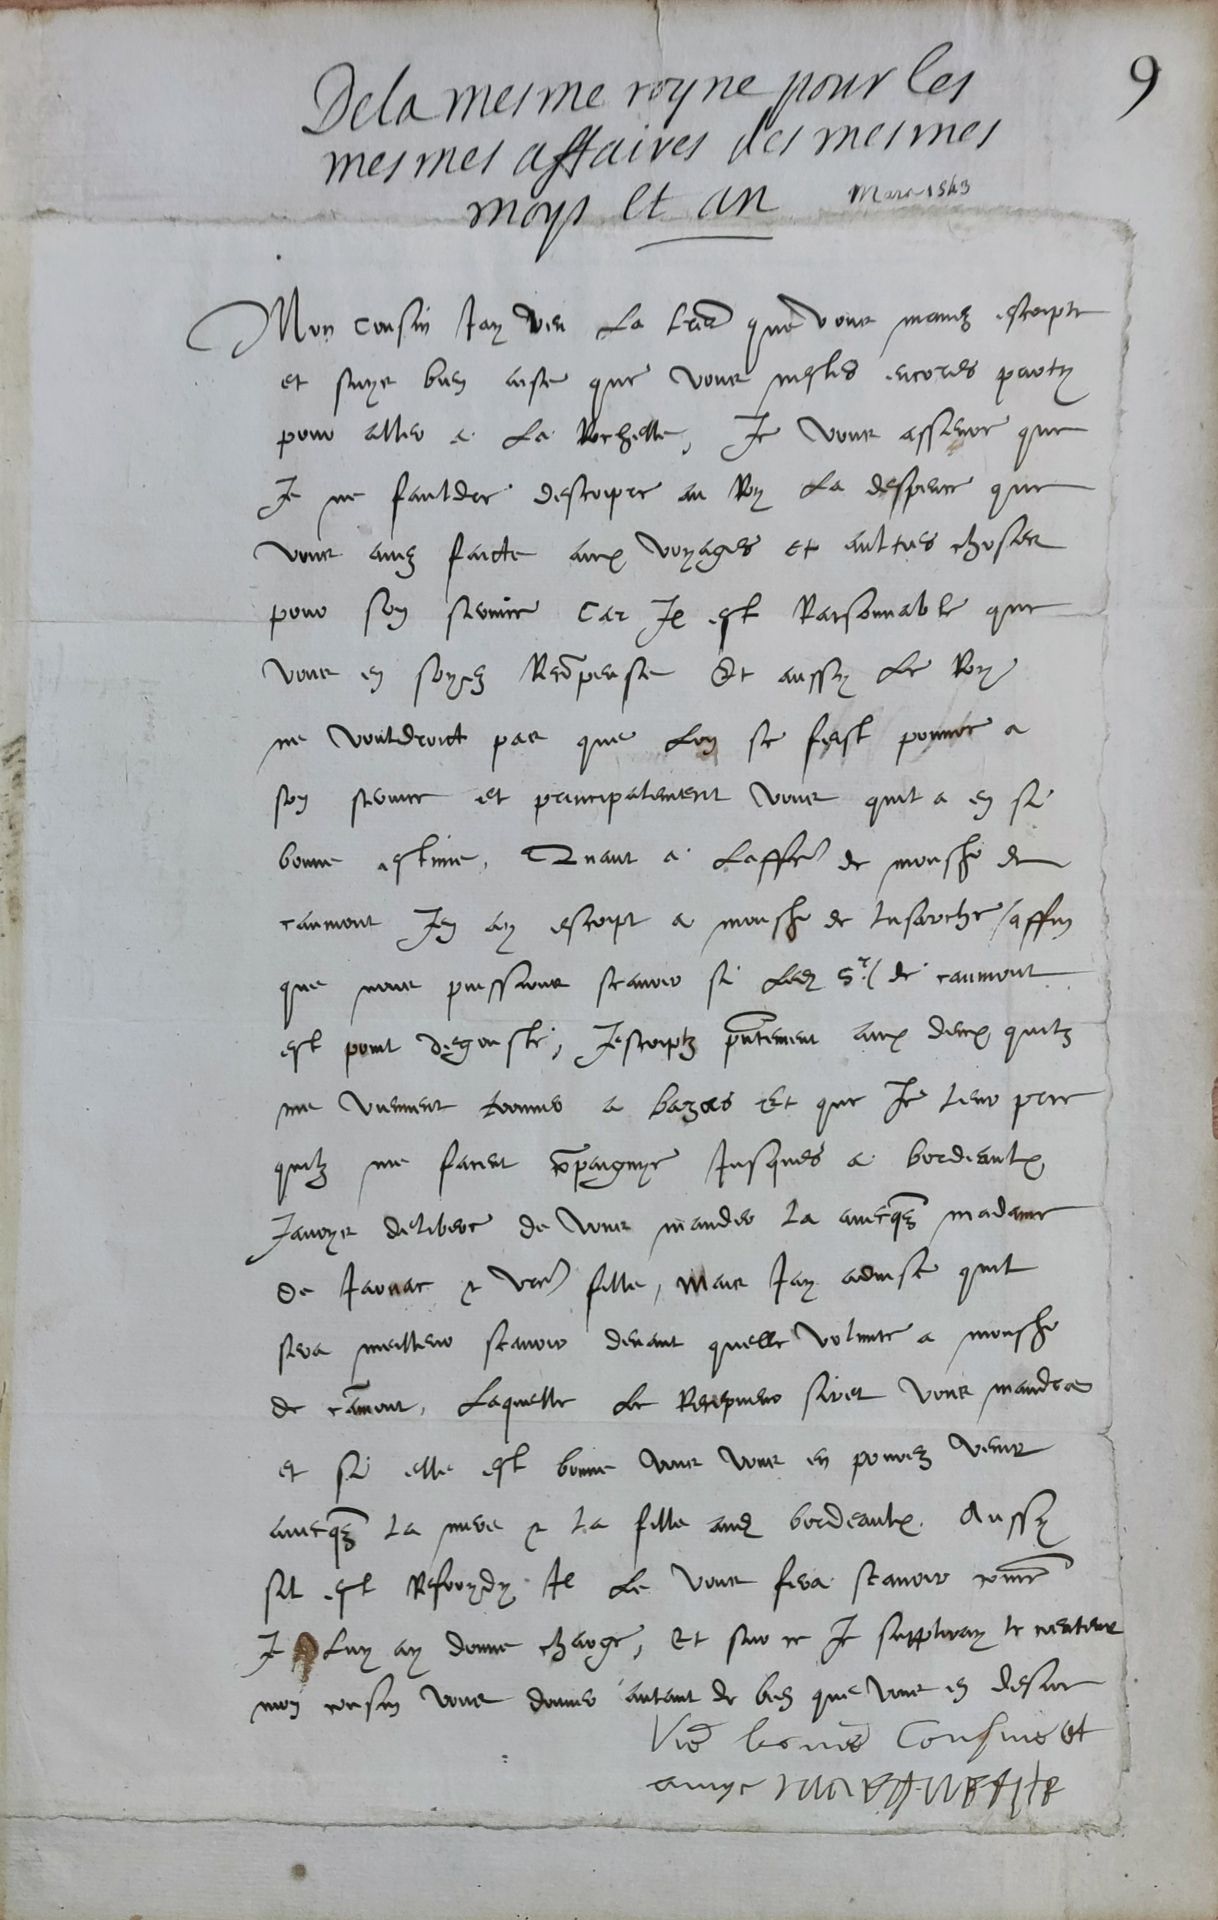 De la mesme royne pour les
mesmes affaires des mesmes
moys et an
Mars 1543
9
Mon cousin Jay veu la lr̄e que vous mavez escripte
et suys bien aise que vous nestes encores party
pour aller a la Rochelle, Je vous asseure que
Je ne fauldre descripre au Roy la despence que
vous avez faicte aux voyages et aultres choses
pour son service Car Il est Raisonnable que
vous en soyez Recōpense Et aussy le Roy
ne vouldroit pas que lon se feist pouvre a
son service et principalement vous quil a en si
bonne estime, Quant a laffre de monsr de
caumont Jen ay escript a monsr de lusarche / affin
que nous puissions scavoir si led Sr de caumont
est point degouste, Jescriptz pn̄tement aux deux quilz
me viennent trouver a bazas Et que Je leur prie
quilz me facent cōpaignye Jusques a bordeaulx
Javoys delibere de vous mander la avecqz madame
de Jarnac & vre fille, mais Jay advise quil
sera meilleur scavoir devant quelle volunte a monsr
de cāmont, laquelle le Recepveur vous mandra
et si elle est bonne vous vous en pouvez venir
avecqz la mere & la fille aud bordeaulx. Aussy
sil est Refroydy Il le vous fera scavoir com̄e
Je luy ay donne charge, Et sur ce Je suppliray le createur
mon cousin vous donner autant de bien que vous en desire
Vrē bonne Cousine et
amye Marguerite